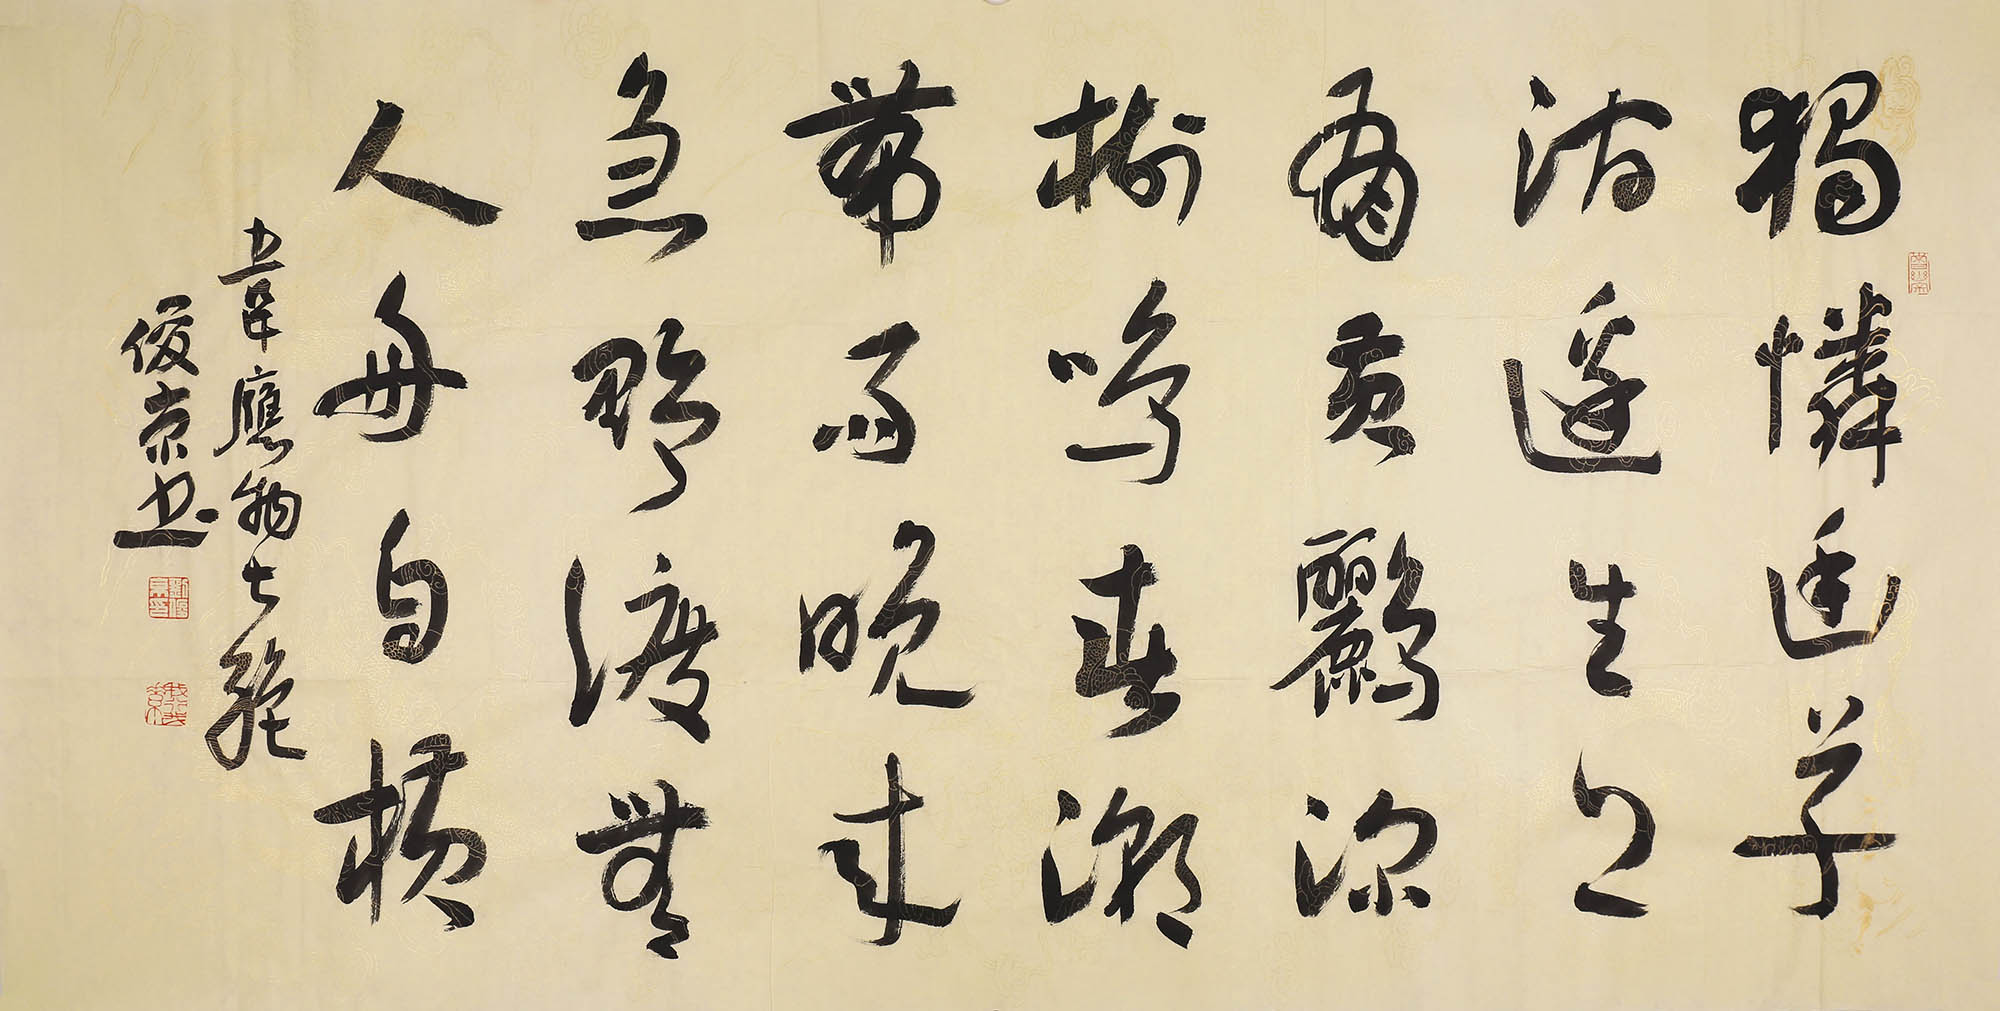 獨憐幽草
澗邊生上
有黄鸝深
樹鳴春潮
帶雨晚來
急野渡無
人舟自橫
书韋應物七絶
俊京书